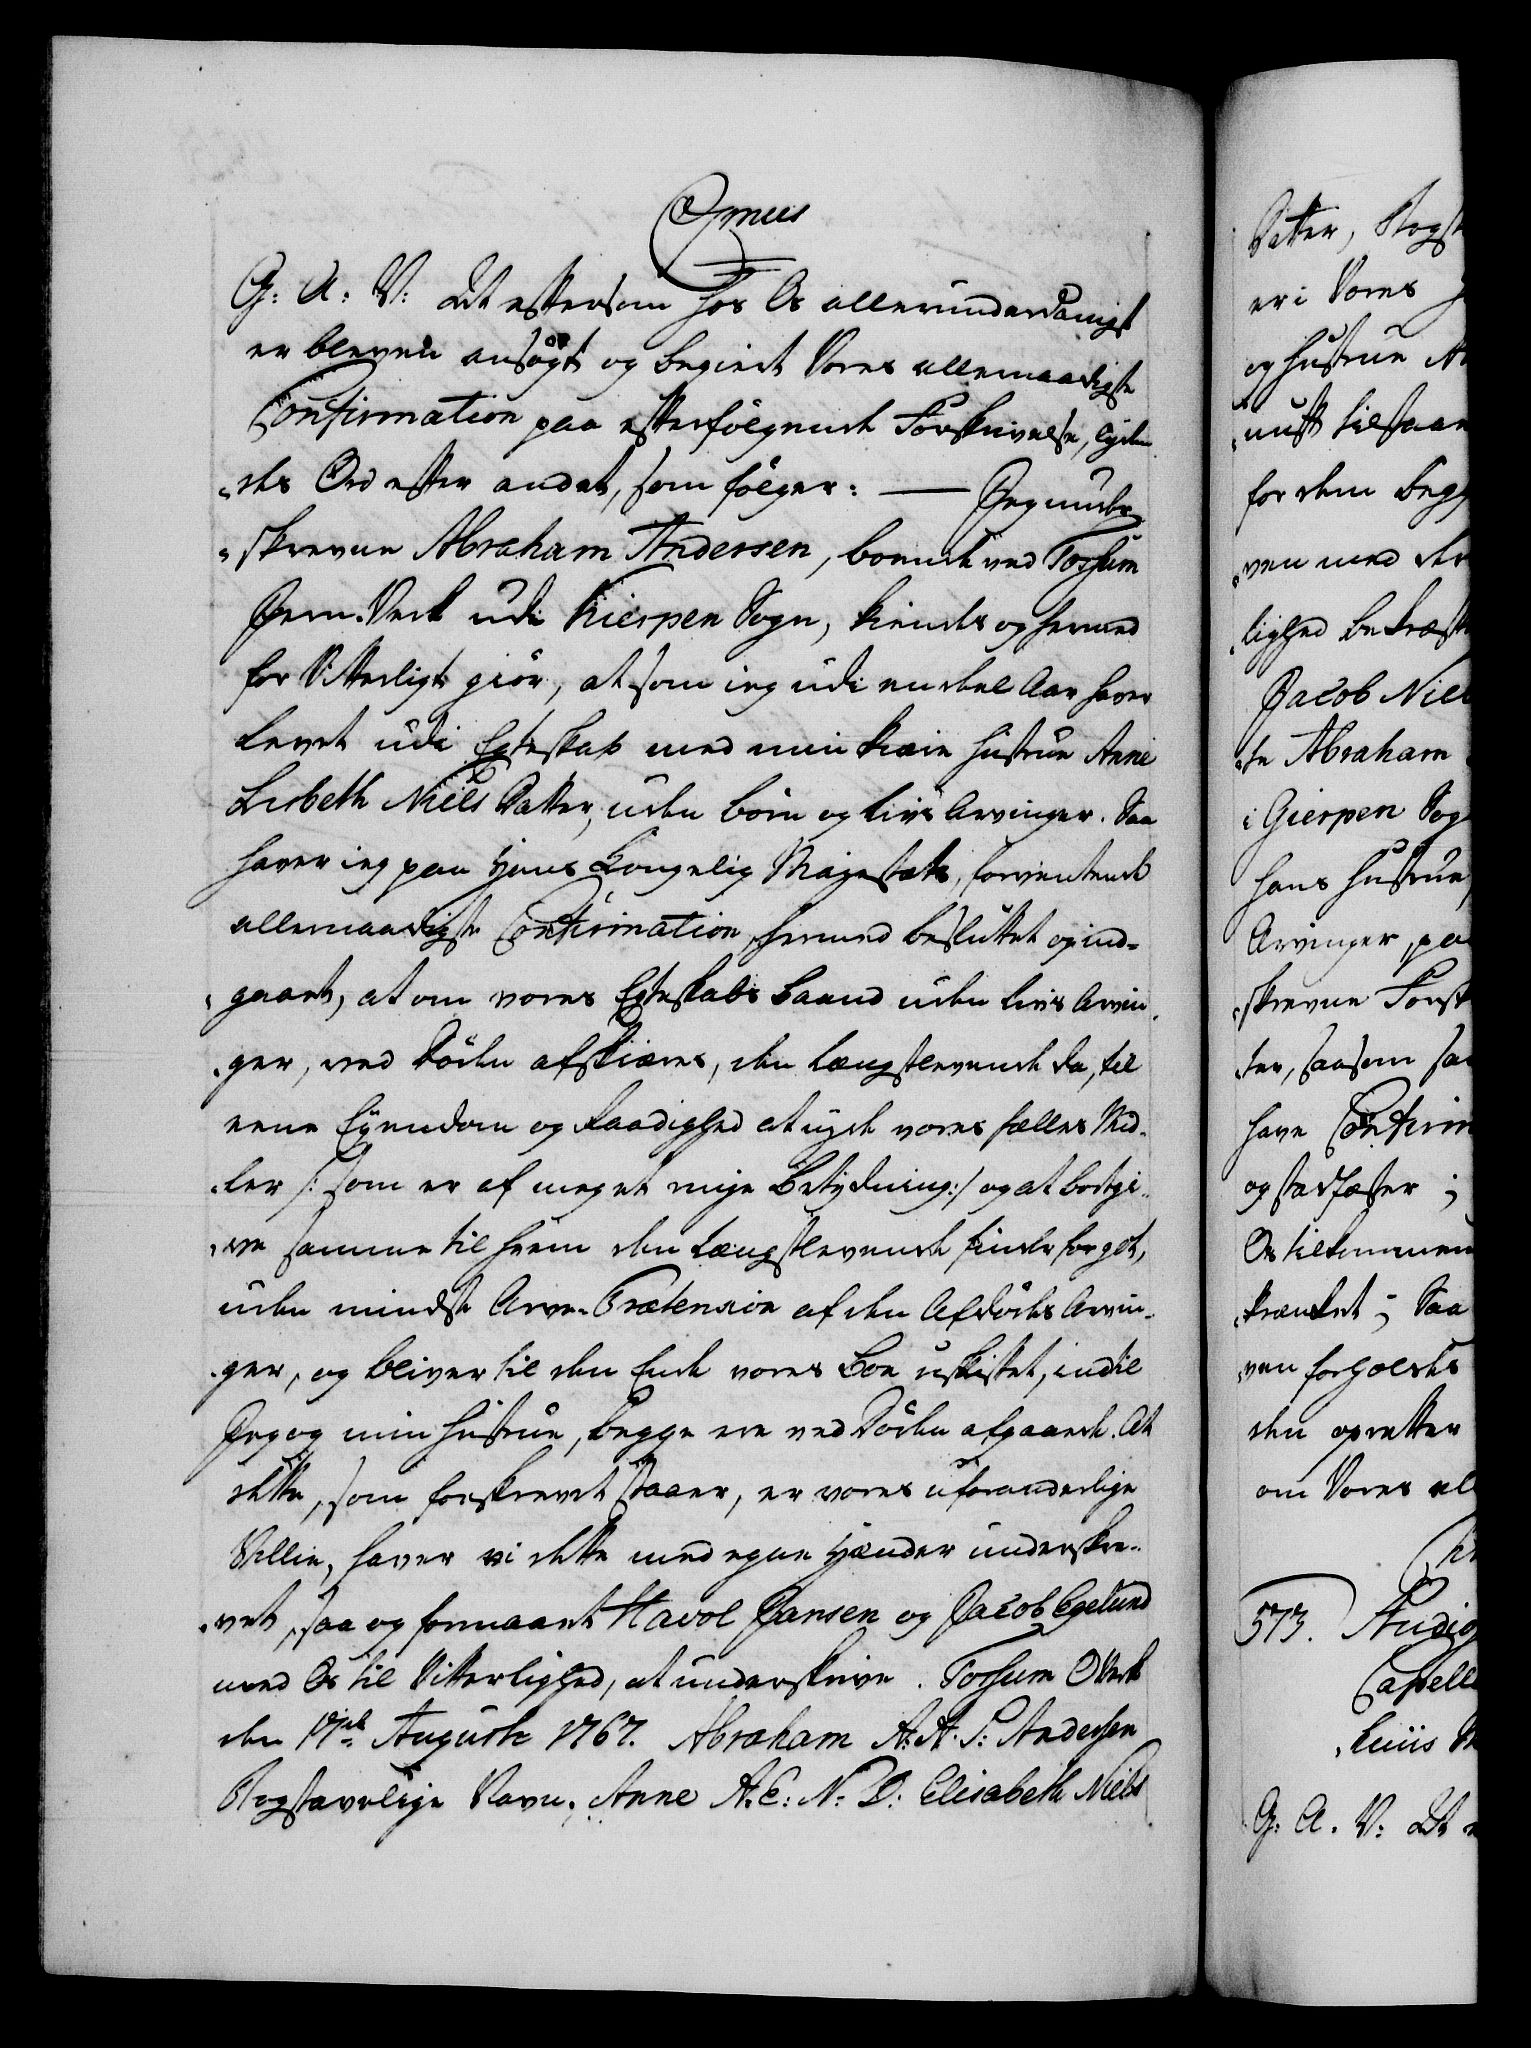 Omnes
G: A: V: At eftersom hos Os allerunderdanigst
er bleven ansögt og begiert Vores allernaadigste
Confirmation paa efterfölgende Forskrivelse, lyden
des Ord efter andet, som fölger: — Jeg under
skrevne Abraham Andersen, boende ved Fossum
Jern-Verk udi Kierpen Sogn, kiendes og hermed
for Vitterligt giör, at som ieg udi en deel Aar haver
levet udi Egteskab med min kiære Hustrue Anne
Lisbeth Niels Datter, uden börn og livs Arvinger. Saa
haver ieg paa Hans Kongelig Majestæts, forventende
allernaadigste Confirmation, hermed besluttet og ind-
gaaet, at om vores Egteskabs baand uden livs Arvin
ger, ved Döden afskiæres, den længstlevende da, til
eene Eyendom og Raadighed at nyde vores fælles Mid-
ler /: som er af meget ringe Betydning :/ og at bortgi-
ve samme til hvem den længstlevende finder for got,
uden mindste Arve-Prætension af den Afdödes Arvin-
ger, og bliver til den Ende vores Boe uskiftet, indtil
Jeg og min Hustrue, begge ere ved Döden afgaaede. At
dette, som forskrevet staaer, er vores uforanderlige
Villie, haver vi dette med egne Hænder underskre-
vet, saa og formaaet Havol Jansen og Jacob Egelund
med Os til Vitterlighed, at underskrive. Fossum Verk
den 17de Augusti 1767. Abraham A: A: S: Andersen
Bogstavelige Navn. Anne A: E: N: D: Elisabeth Niels
Datter, Bogst
er i Vores
og Hustrue A
nust tilstaae
for dem begg
ven med de
lighed bekræft
Jacob Niel
te Abraham
i Gierpen Sog
hans Hustrue,
Arvinger, pa
skrevne Forsk
der, saasom sa
have Confirm
og stadfæster;
Os tilkommen
krænket; Saa
ven forholdes
den opretter
om Vores al
573. Studios
Capell
G: A: V: At